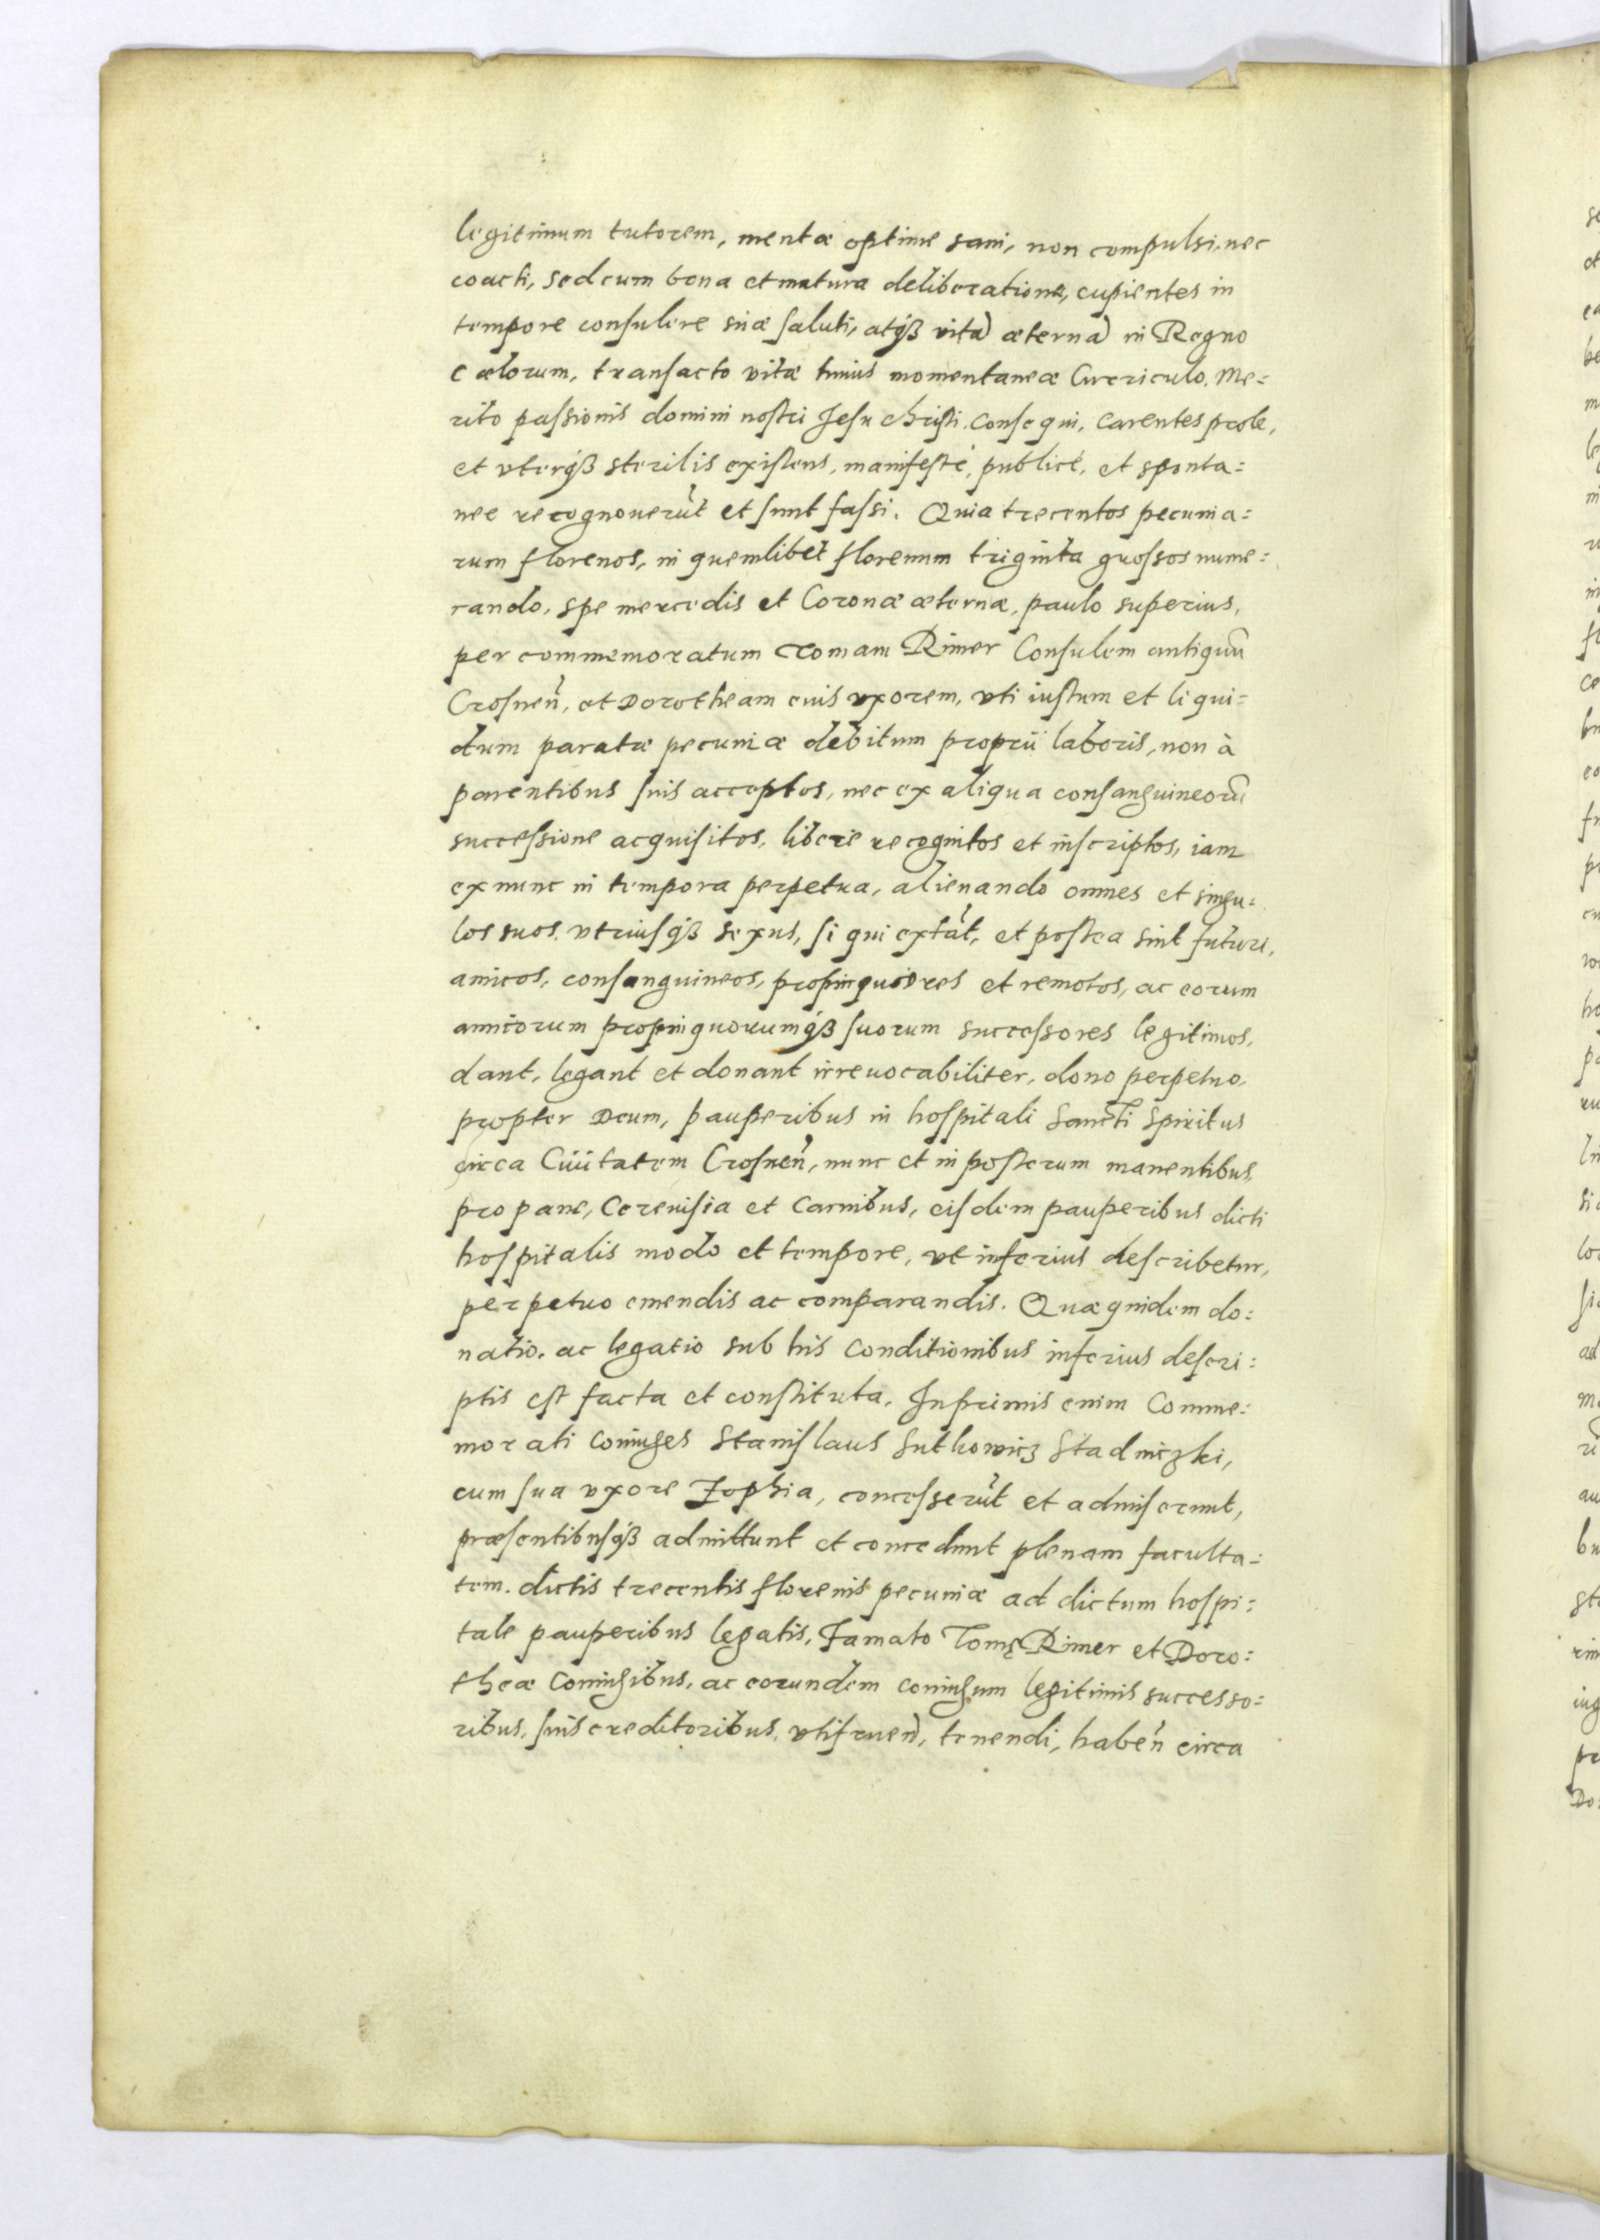 legitimum tutorem, mentæ optime sani, non compulsi, nec
coacti, sed cum bona et matura deliberatione, cupientes in
tempore consulere suæ saluti, atq́ꝫ vitā æternā in Regno
Cælorum, transacto vitæ huius momentaneæ Curriculo, Me=
rito passionis domini nostri Jesu christi consequi, Carentes prole,
et vterq́ꝫ sterilis existens, manifesté, publicé, et sponta=
nee recognouerūt et sunt fassi. Quia trecentos pecunia=
rum florenos, in quemlibet florenum triginta grossos nume=
rando, spe mercedis et Coronæ æternæ, paulo superius,
per commemoratum Tomam Rimer Consulem antiquū
Crosneñ, et Dorotheam eius vxorem, vti iustum et liqui=
dum paratæ pecuniæ debitum proprii laboris, non à
parentibus suis acceptos, nec ex aliqua consanguineorū
successione acquisitos, libere recognitos et inscriptos, iam
ex nunc in tempora perpetua, alienando omnes et singu=
los suos vtriusq́ꝫ sexus, si qui extāt, et postea sint futuri,
amicos, consanguineos, propinquiores et remotos, ac eorum
amicorum propinquorumq́ꝫ suorum successores legitimos,
dant, legant et donant irreuocabiliter, dono perpetuo,
propter Deum, pauperibus in hospitali Sancti Spiritus
circa Ciuitatem Crosneñ, nunc et in posterum manentibus,
pro pane, Cereuisia et Carnibus, eisdem pauperibus dicti
hospitalis modo et tempore, vt inferius describetur,
perpetuo emendis ac comparandis. Quæ quidem do=
natio, ac legatio sub his Conditionibus inferius descri=
ptis est facta et constituta. Inprimis enim Comme=
morati coniuges Stanislaus Suthowicz Stadniczki,
cum sua vxore Zophia, concesserūt et admiserunt,
præsentibusq́ꝫ admittunt et concedunt plenam faculta=
tem, dictis trecentis florenis pecuniæ ad dictum hospi=
tale pauperibus legatis, Famato Tomę Rimer et Doro=
theæ Coniugibus, ac eorundem coniugum legitimis successo=
ribus, suis creditoribus, vtifrueñ, tenendi, habeñ circa